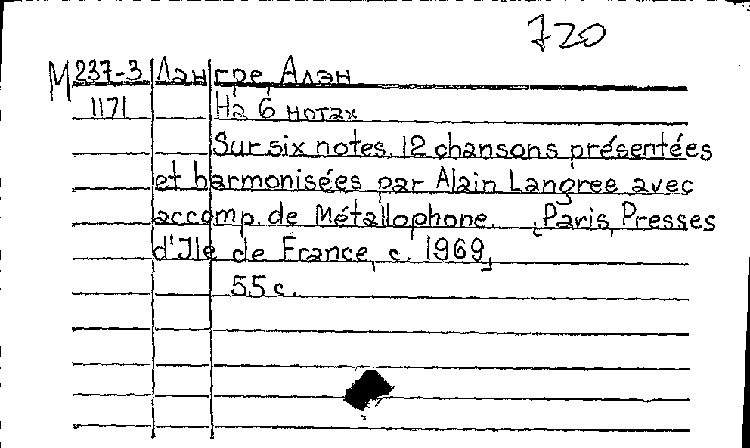 720
М 237-3 Лангре, Алэн
1171 На 6 нотах
Sur six notes. 12 chansons présentées
et harmonisées par Alain Langree avec
accomp. de Métallophone. [Paris, Presses
d'Ile de France, c. 1969]
55 с.